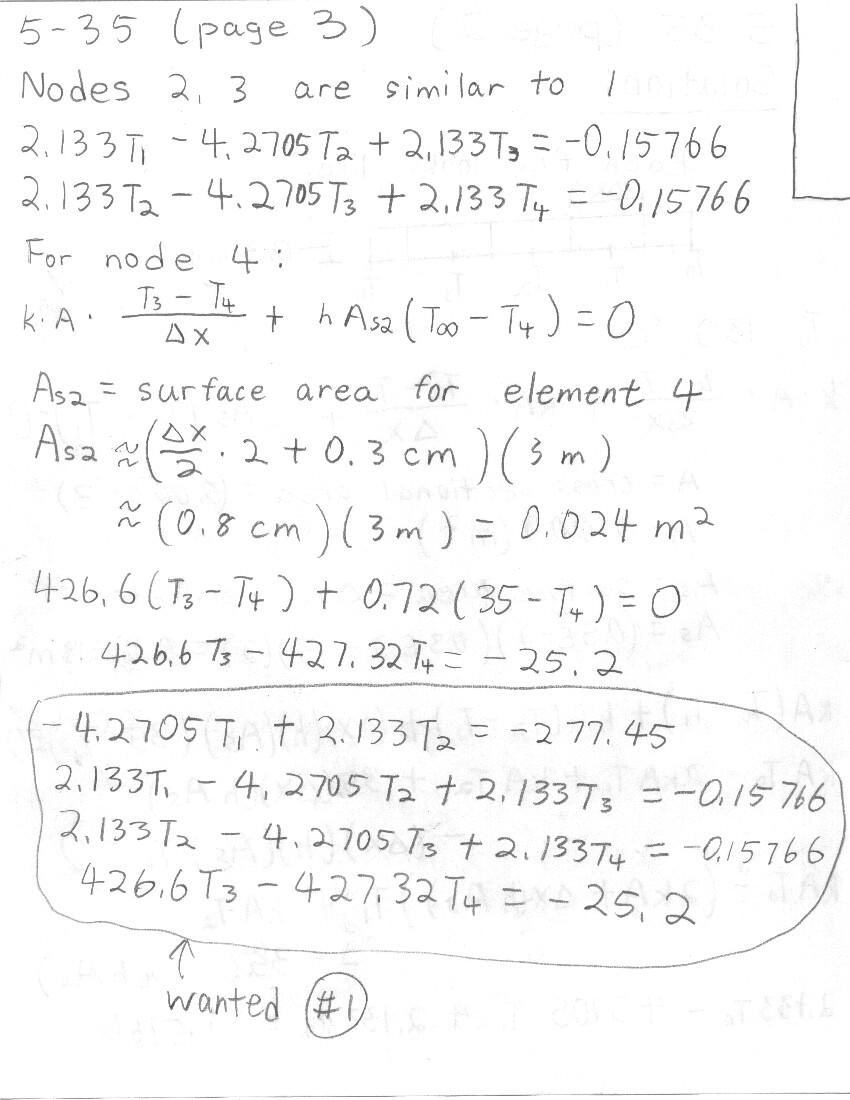 5-35 (page 3)
Nodes 2, 3 are similar to 1
2.133T₁ - 4.2705T₂ + 2.133T₃ = -0.15766
2.133T₂ - 4.2705T₃ + 2.133T₄ = -0.15766
For node 4:
k·A· (T₃ - T₄)/Δx + hAs2(T∞ - T₄) = 0
As2 = surface area for element 4
As2 ≈ (Δx/2 · 2 + 0.3 cm)(3 m)
≈ (0.8 cm)(3 m) = 0.024 m²
426.6(T₃ - T₄) + 0.72(35 - T₄) = 0
426.6T₃ - 427.32T₄ = -25.2
-4.2705T₁ + 2.133T₂ = -277.45
2.133T₁ - 4.2705T₂ + 2.133T₃ = -0.15766
2.133T₂ - 4.2705T₃ + 2.133T₄ = -0.15766
426.6T₃ - 427.32T₄ = -25.2
↑
wanted #1